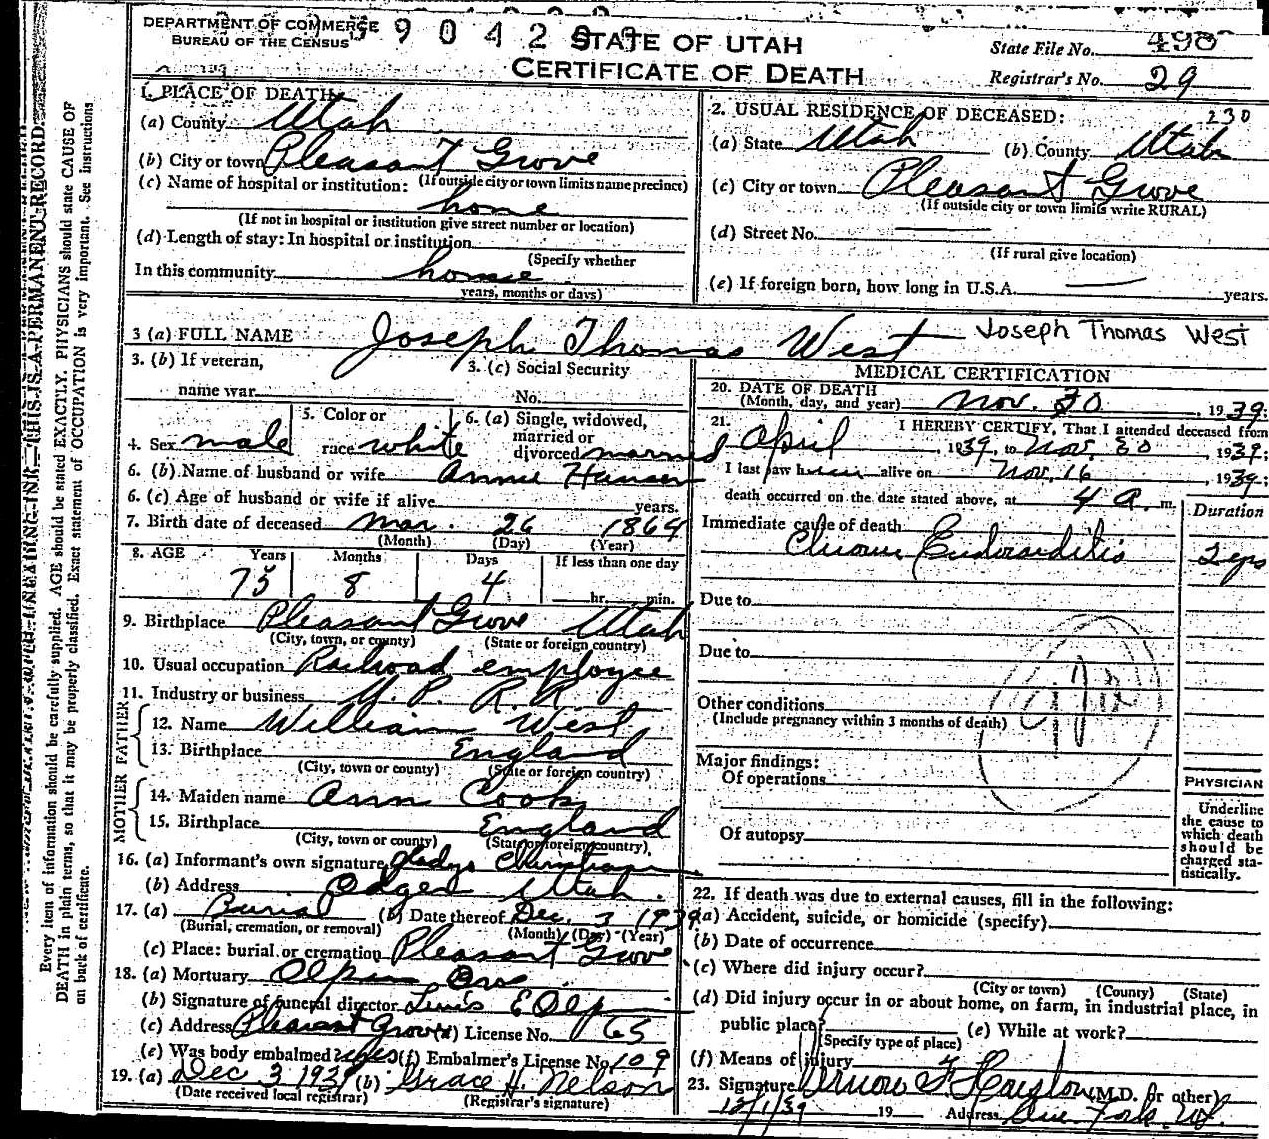 DEPARTMENT OF COMMERCE
BUREAU OF THE CENSUS
9 0 4 2
STATE OF UTAH
CERTIFICATE OF DEATH
State File No. 498
Registrar's No. 29
1. PLACE OF DEATH
(a) County Utah
(b) City or town Pleasant Grove
(If outside city or town limits name precinct)
(c) Name of hospital or institution:
home
(If not in hospital or institution give street number or location)
(d) Length of stay: In hospital or institution
(Specify whether
In this community home
years, months or days)
2. USUAL RESIDENCE OF DECEASED: 230
(a) State Utah (b) County Utah
(c) City or town Pleasant Grove
(If outside city or town limits write RURAL)
(d) Street No.
(If rural give location)
(e) If foreign born, how long in U.S.A. years.
3 (a) FULL NAME Joseph Thomas West Joseph Thomas West
3. (b) If veteran,
name war
3. (c) Social Security
No.
4. Sex male
5. Color or
race white
6. (a) Single, widowed,
married or
divorced married
6. (b) Name of husband or wife Annie Hansen
6. (c) Age of husband or wife if alive years.
7. Birth date of deceased Mar. 26 1864
(Month) (Day) (Year)
8. AGE Years Months Days If less than one day
75 8 4 hr. min.
9. Birthplace Pleasant Grove Utah
(City, town, or county) (State or foreign country)
10. Usual occupation Railroad employee
11. Industry or business U. P. R. R.
FATHER
12. Name William West
13. Birthplace England
(City, town or county) (State or foreign country)
MOTHER
14. Maiden name Ann Cook
15. Birthplace England
(City, town or county) (State or foreign country)
16. (a) Informant's own signature Gladys
(b) Address Ogden Utah.
17. (a) Burial (b) Date thereof Dec. 3 1939
(Burial, cremation, or removal) (Month) (Day) (Year)
(c) Place: burial or cremation Pleasant Grove
18. (a) Mortuary Olpin Bros
(b) Signature of funeral director E Olpin
(c) Address Pleasant Grove (d) License No. 65
(e) Was body embalmed? yes (f) Embalmer's License No. 109
19. (a) Dec 3 1939 (b) Grace H. Nelson
(Date received local registrar) (Registrar's signature)
MEDICAL CERTIFICATION
20. DATE OF DEATH
(Month, day, and year) Nov. 30, 1939;
21. I HEREBY CERTIFY, That I attended deceased from
April, 1939, to Nov. 30, 1939;
I last saw him alive on Nov. 16, 1939;
death occurred on the date stated above, at 4 A. m.
Duration
Immediate cause of death
Chronic Endocarditis 2 yrs
Due to
Due to
Other conditions
(Include pregnancy within 3 months of death)
Major findings:
Of operations
Of autopsy
PHYSICIAN
Underline
the cause to
which death
should be
charged sta-
tistically.
22. If death was due to external causes, fill in the following:
(a) Accident, suicide, or homicide (specify)
(b) Date of occurrence
(c) Where did injury occur?
(City or town) (County) (State)
(d) Did injury occur in or about home, on farm, in industrial place, in
public place? (e) While at work?
(Specify type of place)
(f) Means of injury
23. Signature (M.D. or other)
12/1/39 19 Address
THIS IS A PERMANENT RECORD.
Every item of information should be carefully supplied. AGE should be stated EXACTLY. PHYSICIANS should state CAUSE OF
DEATH in plain terms, so that it may be properly classified. Exact statement of OCCUPATION is very important. See instructions
on back of certificate.